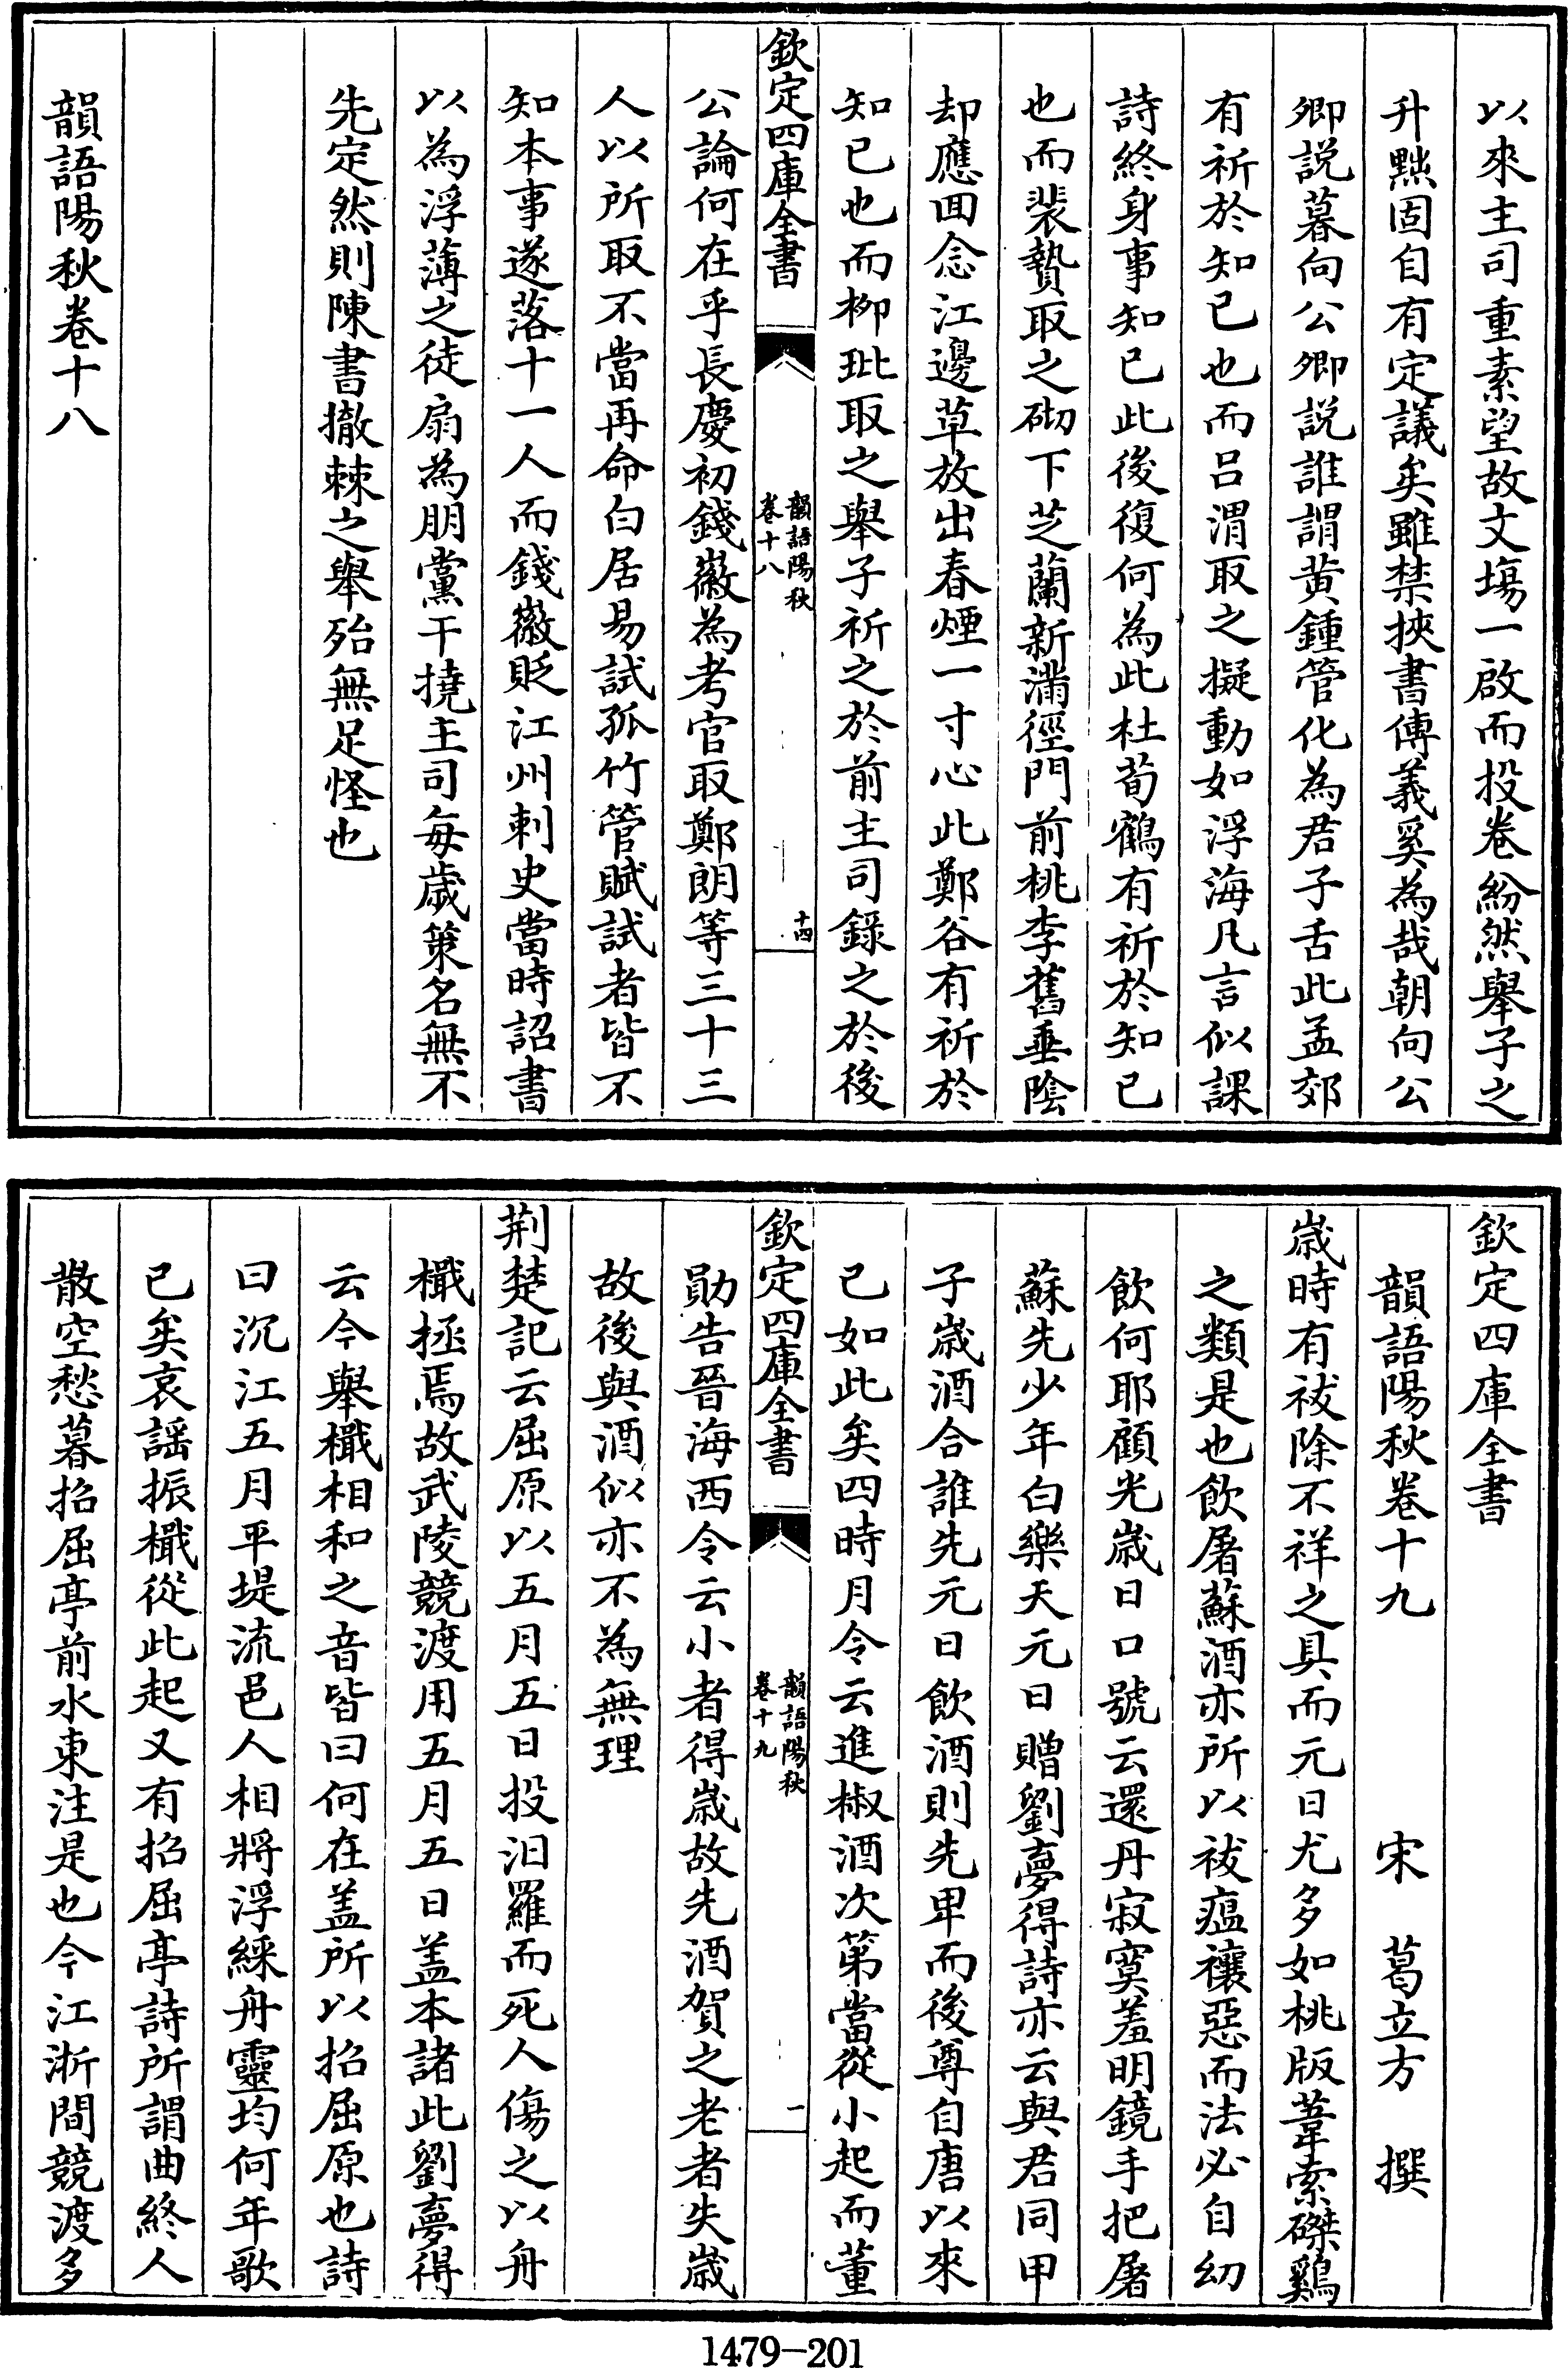 以來主司重素望故文塲一啟而投卷紛然舉子之
升黜固自有定議矣雖禁挾書傳義奚為哉朝向公
卿説暮向公卿説誰謂黄鍾管化為君子舌此孟郊
有祈於知已也而吕渭取之擬動如浮海凡言似課
詩終身事知已此後復何為此杜荀鶴有祈於知已
也而裴贄取之砌下芝蘭新滿徑門前桃李舊垂陰
却應囬念江邊草放出春煙一寸心此鄭谷有祈於
知已也而柳玭取之舉子祈之於前主司錄之於後
欽定四庫全書
韻語陽秋
卷十八
十四
公論何在乎長慶初錢徽為考官取鄭朗等三十三
人以所取不當再命白居易試孤竹管賦試者皆不
知本事遂落十一人而錢徽貶江州刺史當時詔書
以為浮薄之徒扇為朋黨干撓主司每歲策名無不
先定然則陳書撤棘之舉殆無足怪也
韻語陽秋卷十八
欽定四庫全書
韻語陽秋卷十九 宋 葛立方 撰
歲時有祓除不祥之具而元日尤多如桃版葦索磔鷄
之類是也飲屠蘇酒亦所以祓瘟禳惡而法必自幼
飲何耶顧光歲日口號云還丹寂寞羞明鏡手把屠
蘇先少年白樂天元日贈劉夢得詩亦云與君同甲
子歲酒合誰先元日飲酒則先卑而後尊自唐以來
已如此矣四時月令云進椒酒次第當從小起而董
欽定四庫全書
韻語陽秋
卷十九
一
勛告晉海西令云小者得歲故先酒賀之老者失歲
故後與酒似亦不為無理
荆楚記云屈原以五月五日投汨羅而死人傷之以舟
檝拯焉故武陵競渡用五月五日盖本諸此劉夢得
云今舉檝相和之音皆曰何在盖所以招屈原也詩
曰沉江五月平堤流邑人相將浮綵舟靈均何年歌
已矣哀謡振檝從此起又有招屈亭詩所謂曲終人
散空愁暮招屈亭前水東注是也今江浙間競渡多
1479-201